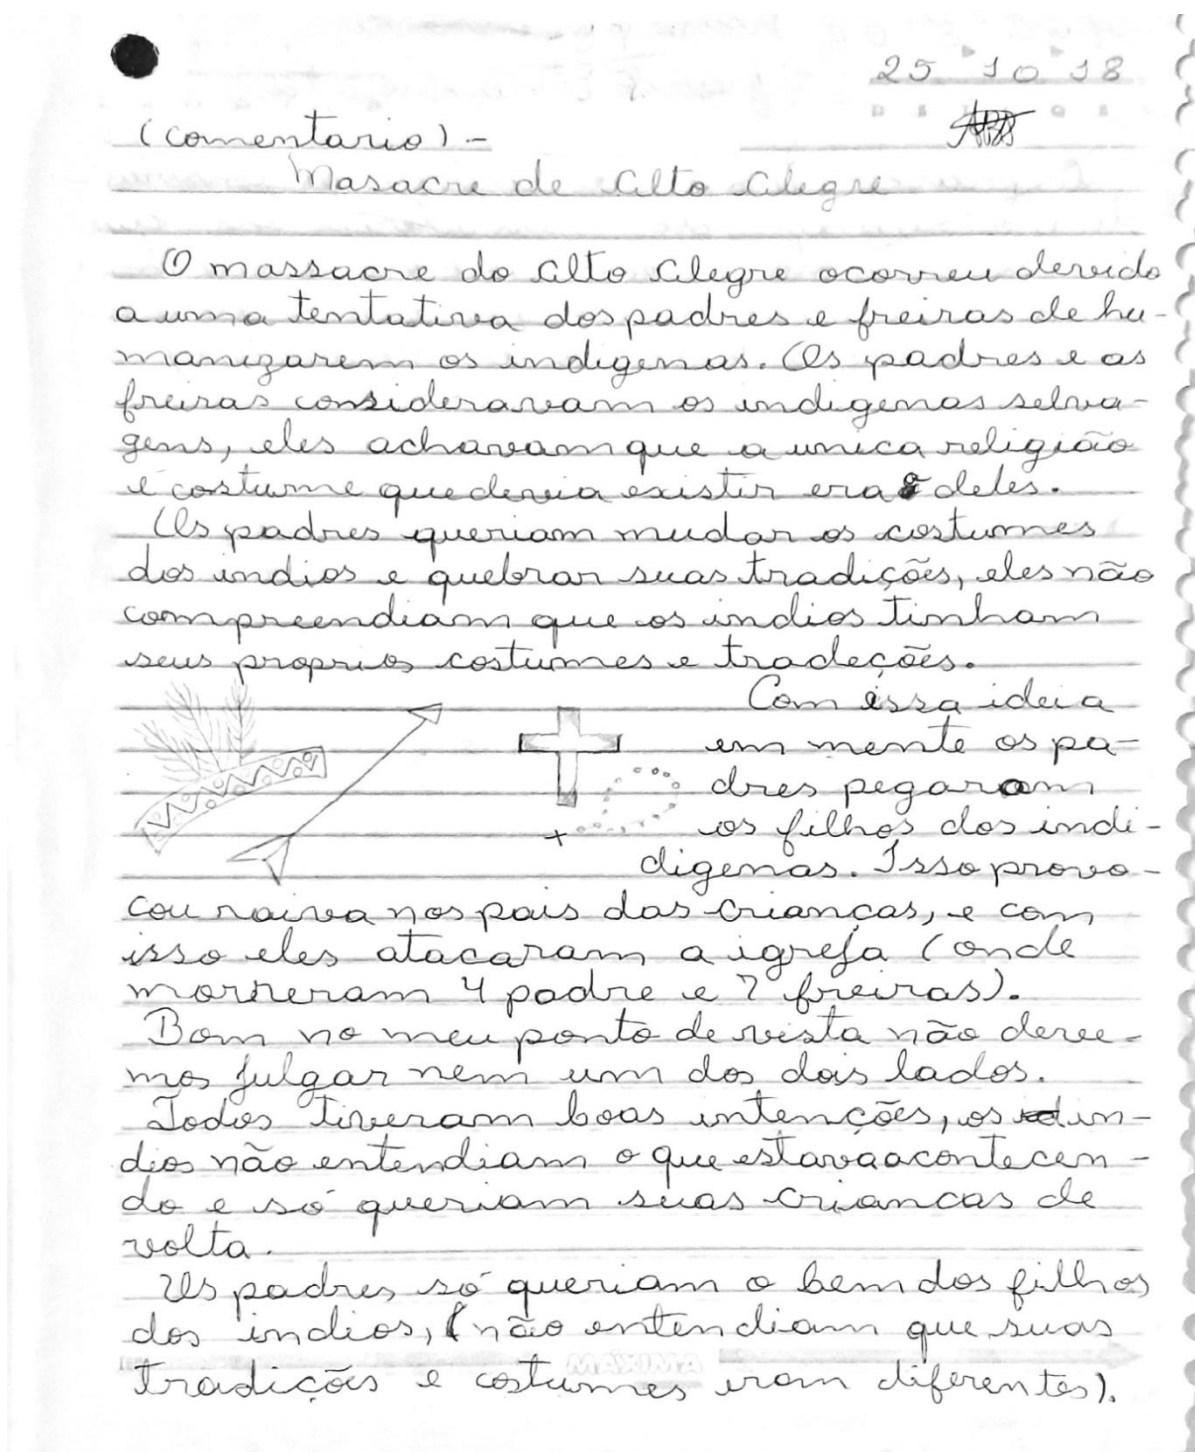 25 10 18
(comentario) -
Masacre de Alto Alegre
O massacre do Alto Alegre ocorreu devido
a uma tentativa dos padres e freiras de hu-
manizarem os indigenas. Os padres e as
freiras consideravam os indigenas selva-
gens, eles achavam que a unica religião
e costume que devia existir era deles.
Os padres queriam mudar os costumes
dos indios e quebrar suas tradições, eles não
compreendiam que os indios tinham
seus proprios costumes e tradeções.
Com essa ideia
em mente os pa-
dres pegaram
os filhos dos indi-
digenas. Isso provo-
cou raiva nos pais das crianças, e com
isso eles atacaram a igreja (onde
morreram 4 padre e 7 freiras).
Bom no meu ponto de vista não deve-
mos julgar nem um dos dois lados.
Todos tiveram boas intenções, os in-
dios não entendiam o que estava acontecen-
do e só queriam suas criancas de
volta.
Os padres só queriam o bem dos filhos
dos indios, (não entendiam que suas
MAXIMA
tradições e costumes eram diferentes).